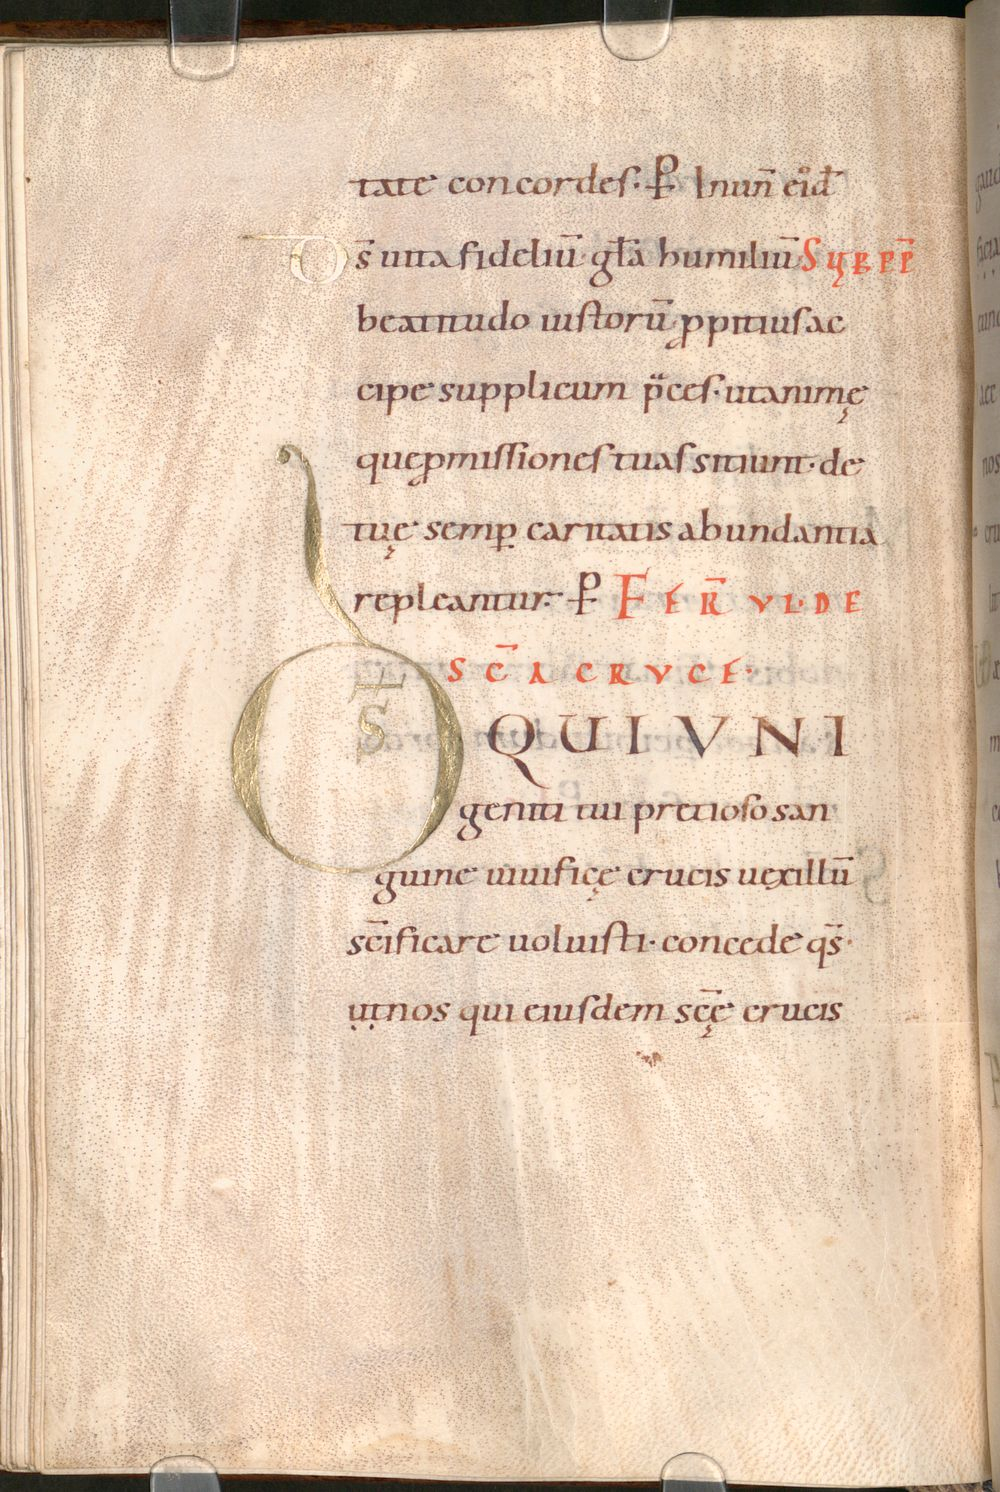 tate concordes· ꝑ In uñ eiꝰd̄
Ds̄ uita fideliū gl̄a humiliū· SUꝐ PP̄
beatitudo iustorū ꝓpitius ac
cipe supplicum p̈ces· ut animę
quę ꝓmissiones tuas sitiunt· de
tuę semꝑ caritatis abundantia
repleantur· ꝑ FER̄ VI· DE
SC̄A CRVCE·
DS̄ QUI VNI
geniti tui pretioso san
guine uiuificę crucis uexillū
sc̄ificare uoluisti· concede qs̄·
ut nos qui eiusdem sc̄ę crucis